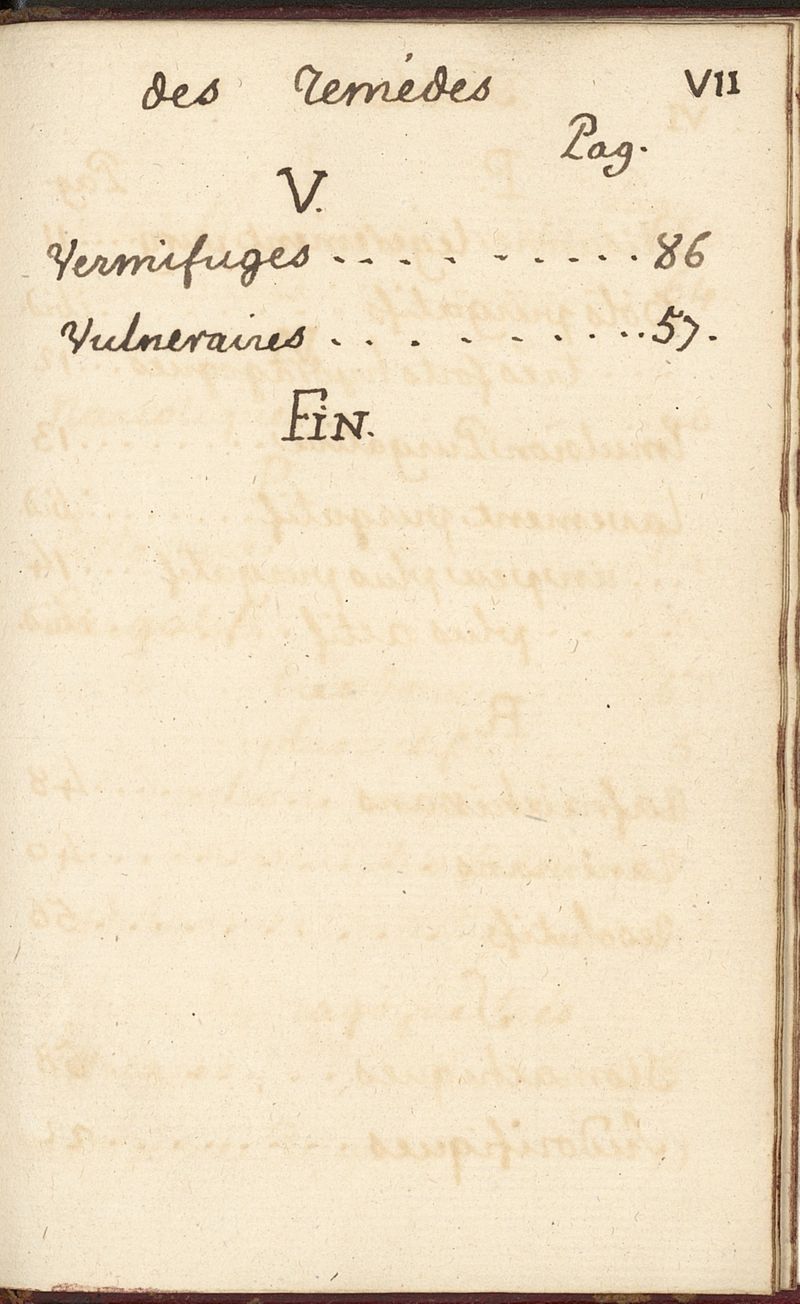 des remédes VII
Pag.
V.
Vermifuges . . . . . . . . . . 86
Vulneraires . . . . . . . . . 57.
FiN.